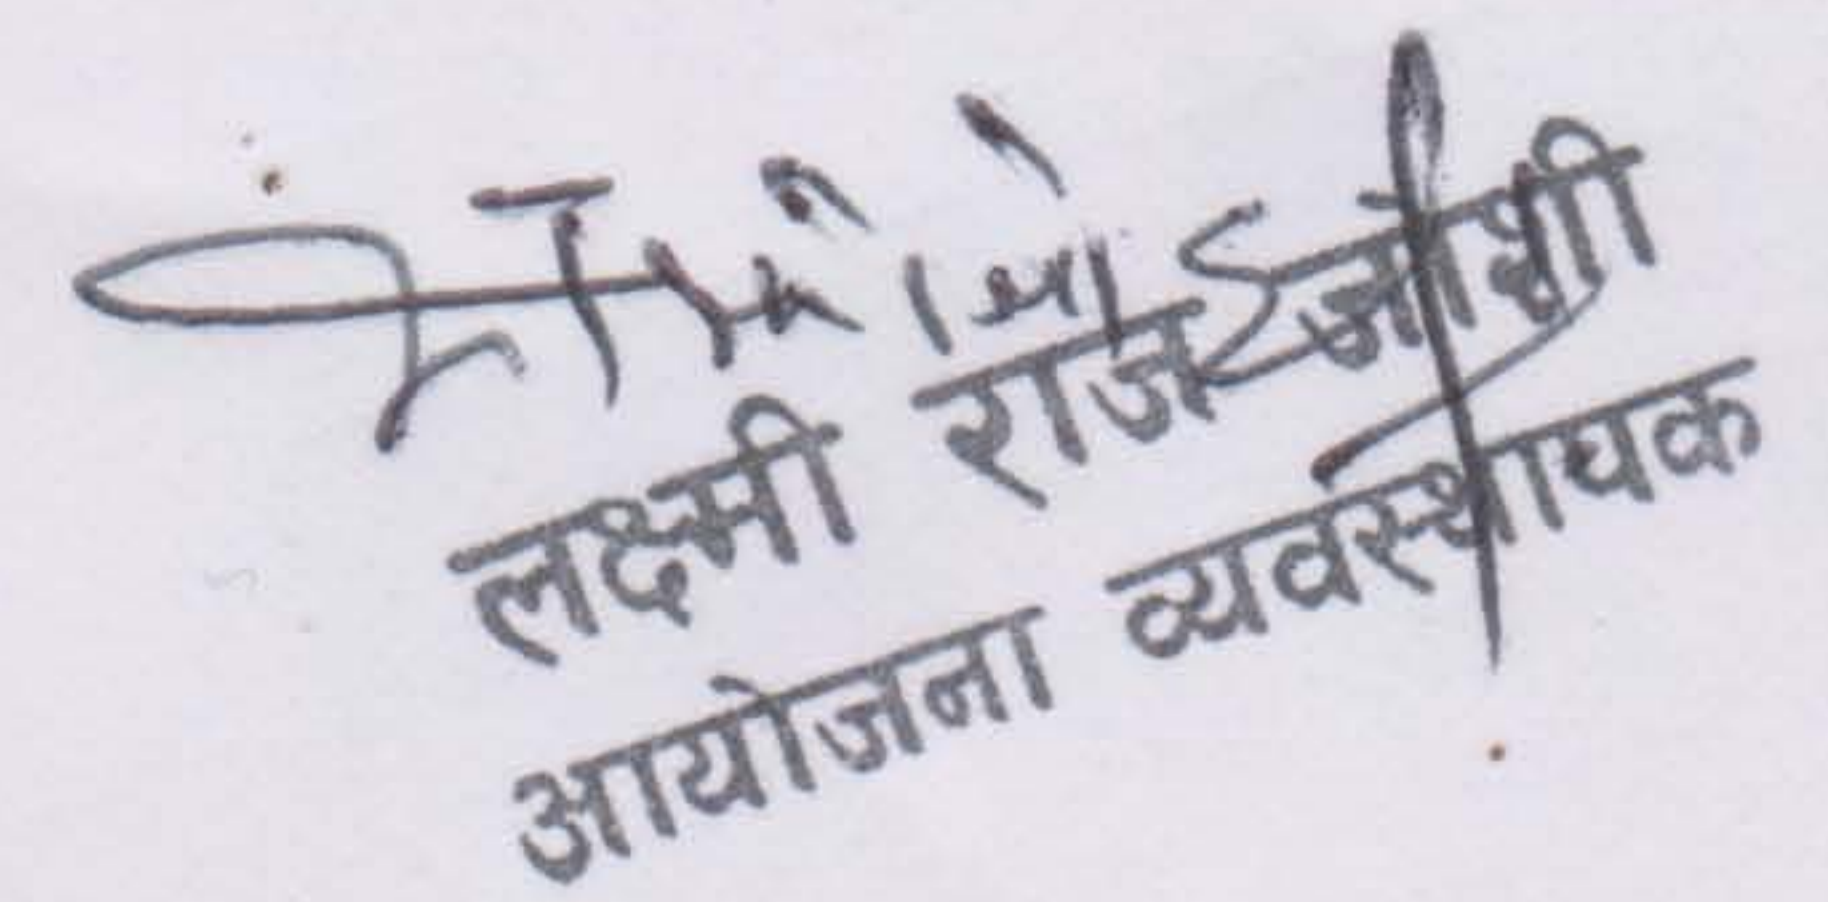 लक्ष्मी राज जोशी
आयोजना व्यवस्थापक